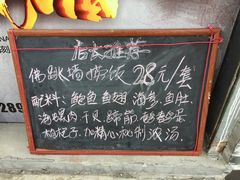 店长推荐
佛跳墙捞饭 28元/套
配料：鲍鱼 鱼翅 海参、鱼肚
海螺肉 干贝 蹄筋
枸杞子、加精心秘制浓汤。
289